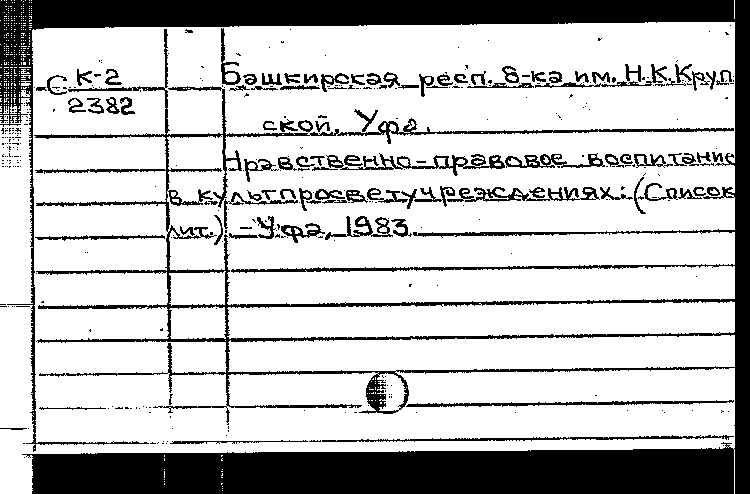 С К-2
2382
Башкирская респ. б-ка им. Н.К.Круп
ской. Уфа.
Нравственно-правовое воспитание
в культпросветучреждениях: (Список
лит.) - Уфа, 1983.